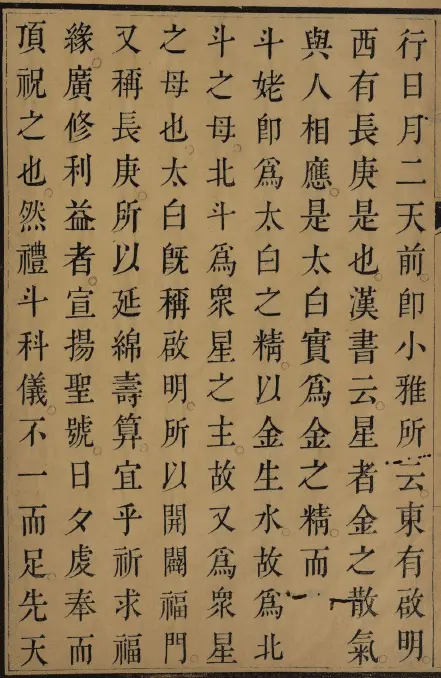 行日月二天前即小雅所云東有啟明
西有長庚是也漢書云星者金之散氣
與人相應是太白實爲金之精而
斗姥卽爲太白之精以金生水故爲北
斗之母北斗爲衆星之主故又爲衆星
之母也太白旣稱啟明所以開闢福門
又稱長庚所以延綿壽算宜乎祈求福
緣廣修利益者宣揚聖號日夕虔奉而
頂祝之也然禮斗科儀不一而足先天